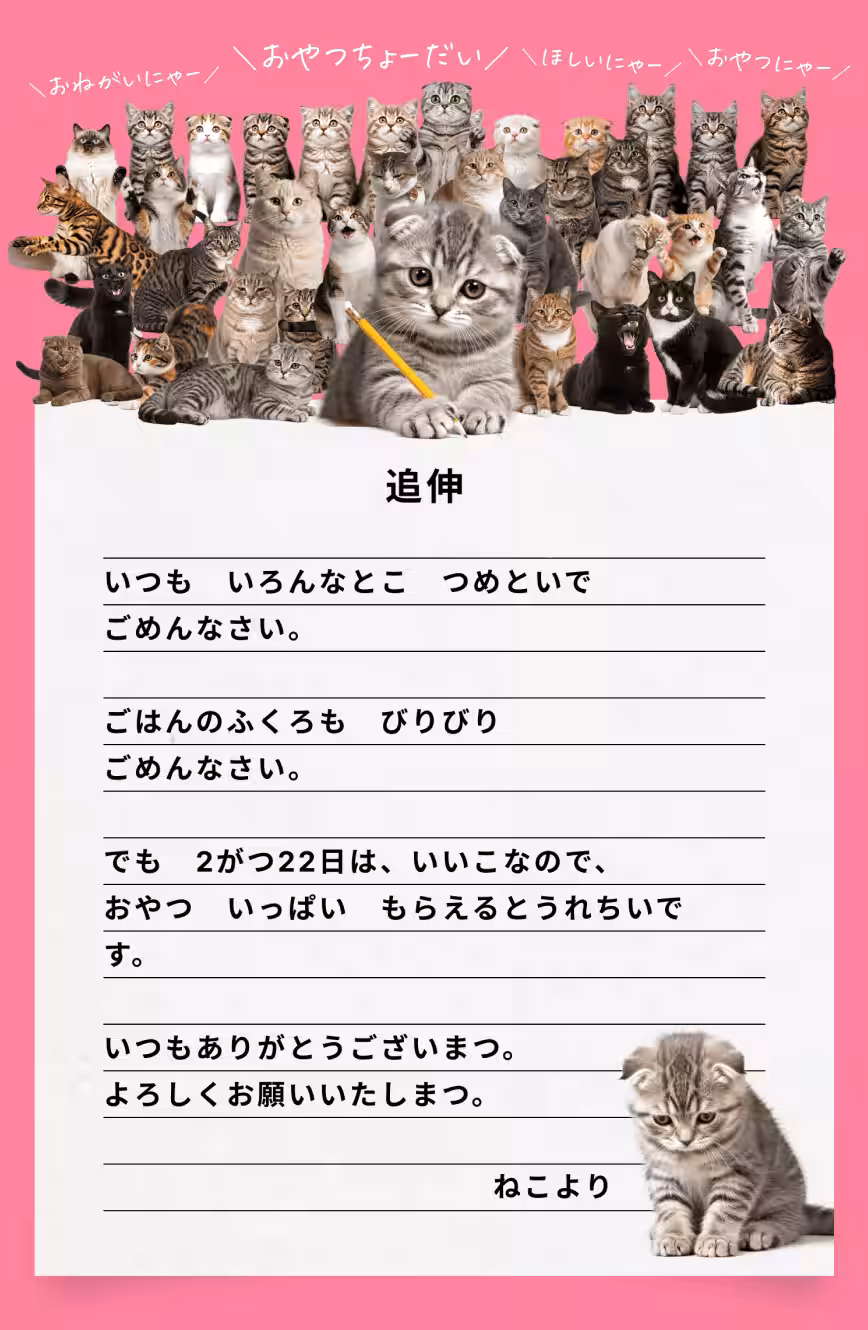 ＼おねがいにゃー／
＼おやつちょーだい／
＼ほしいにゃー／
＼おやつにゃー／
追伸
いつも　いろんなとこ　つめといで
ごめんなさい。
ごはんのふくろも　びりびり
ごめんなさい。
でも　2がつ22日は、いいこなので、
おやつ　いっぱい　もらえるとうれちいで
す。
いつもありがとうございまつ。
よろしくお願いいたしまつ。
ねこより